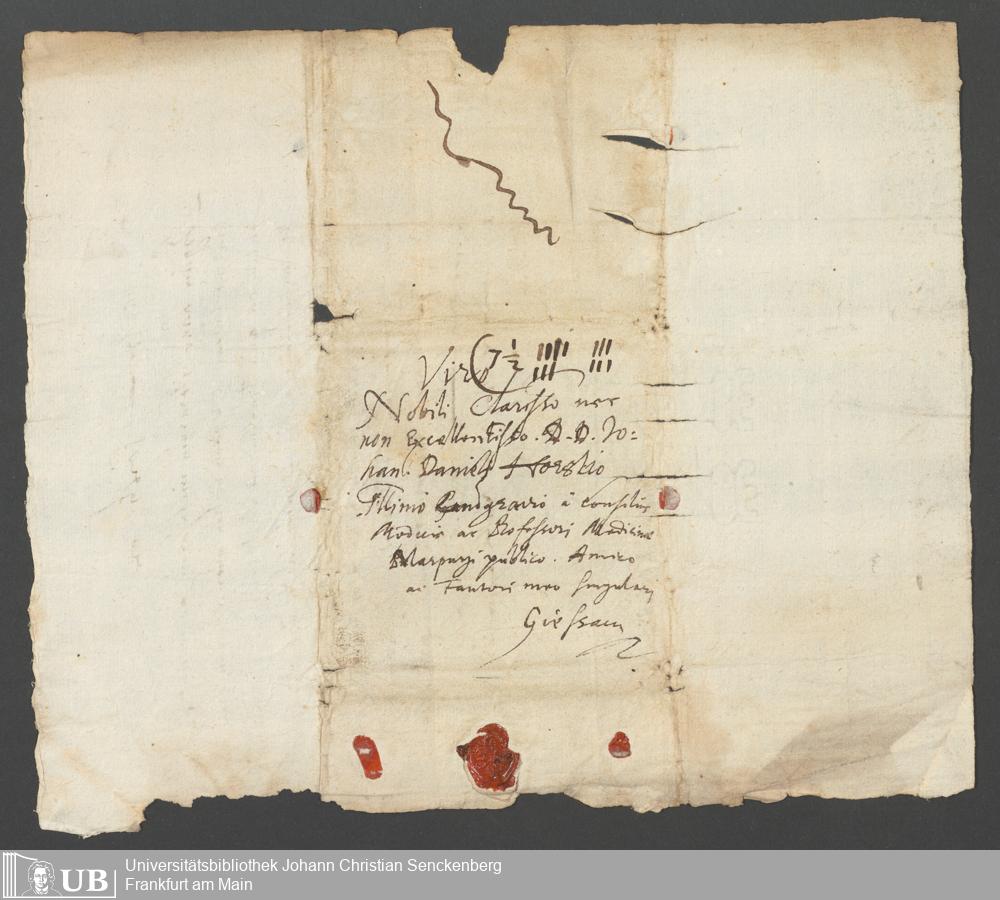 Viro 7 1/2
Nobili Clarisso nec
non Excellentisso. D. D. Jo=
han. Danieli Horstio
Illmi Landgravio à consiliis
Medicis ac Professori Medicinae
Marpurgi publico. Amico
ac Fautori meo singulari
Giessam
UB Universitätsbibliothek Johann Christian Senckenberg
Frankfurt am Main